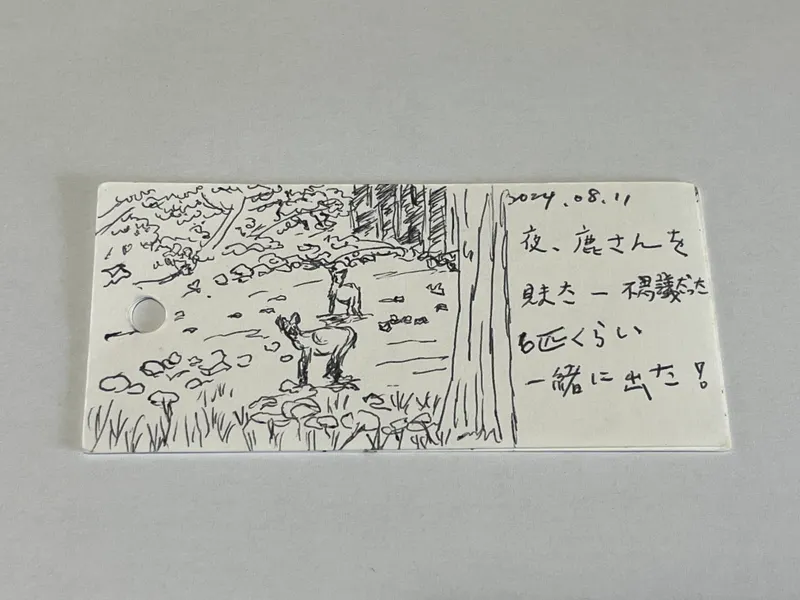 2024.08.11
夜、鹿さんを
見た ー 不思議だった
6匹くらい
一緒に出た!